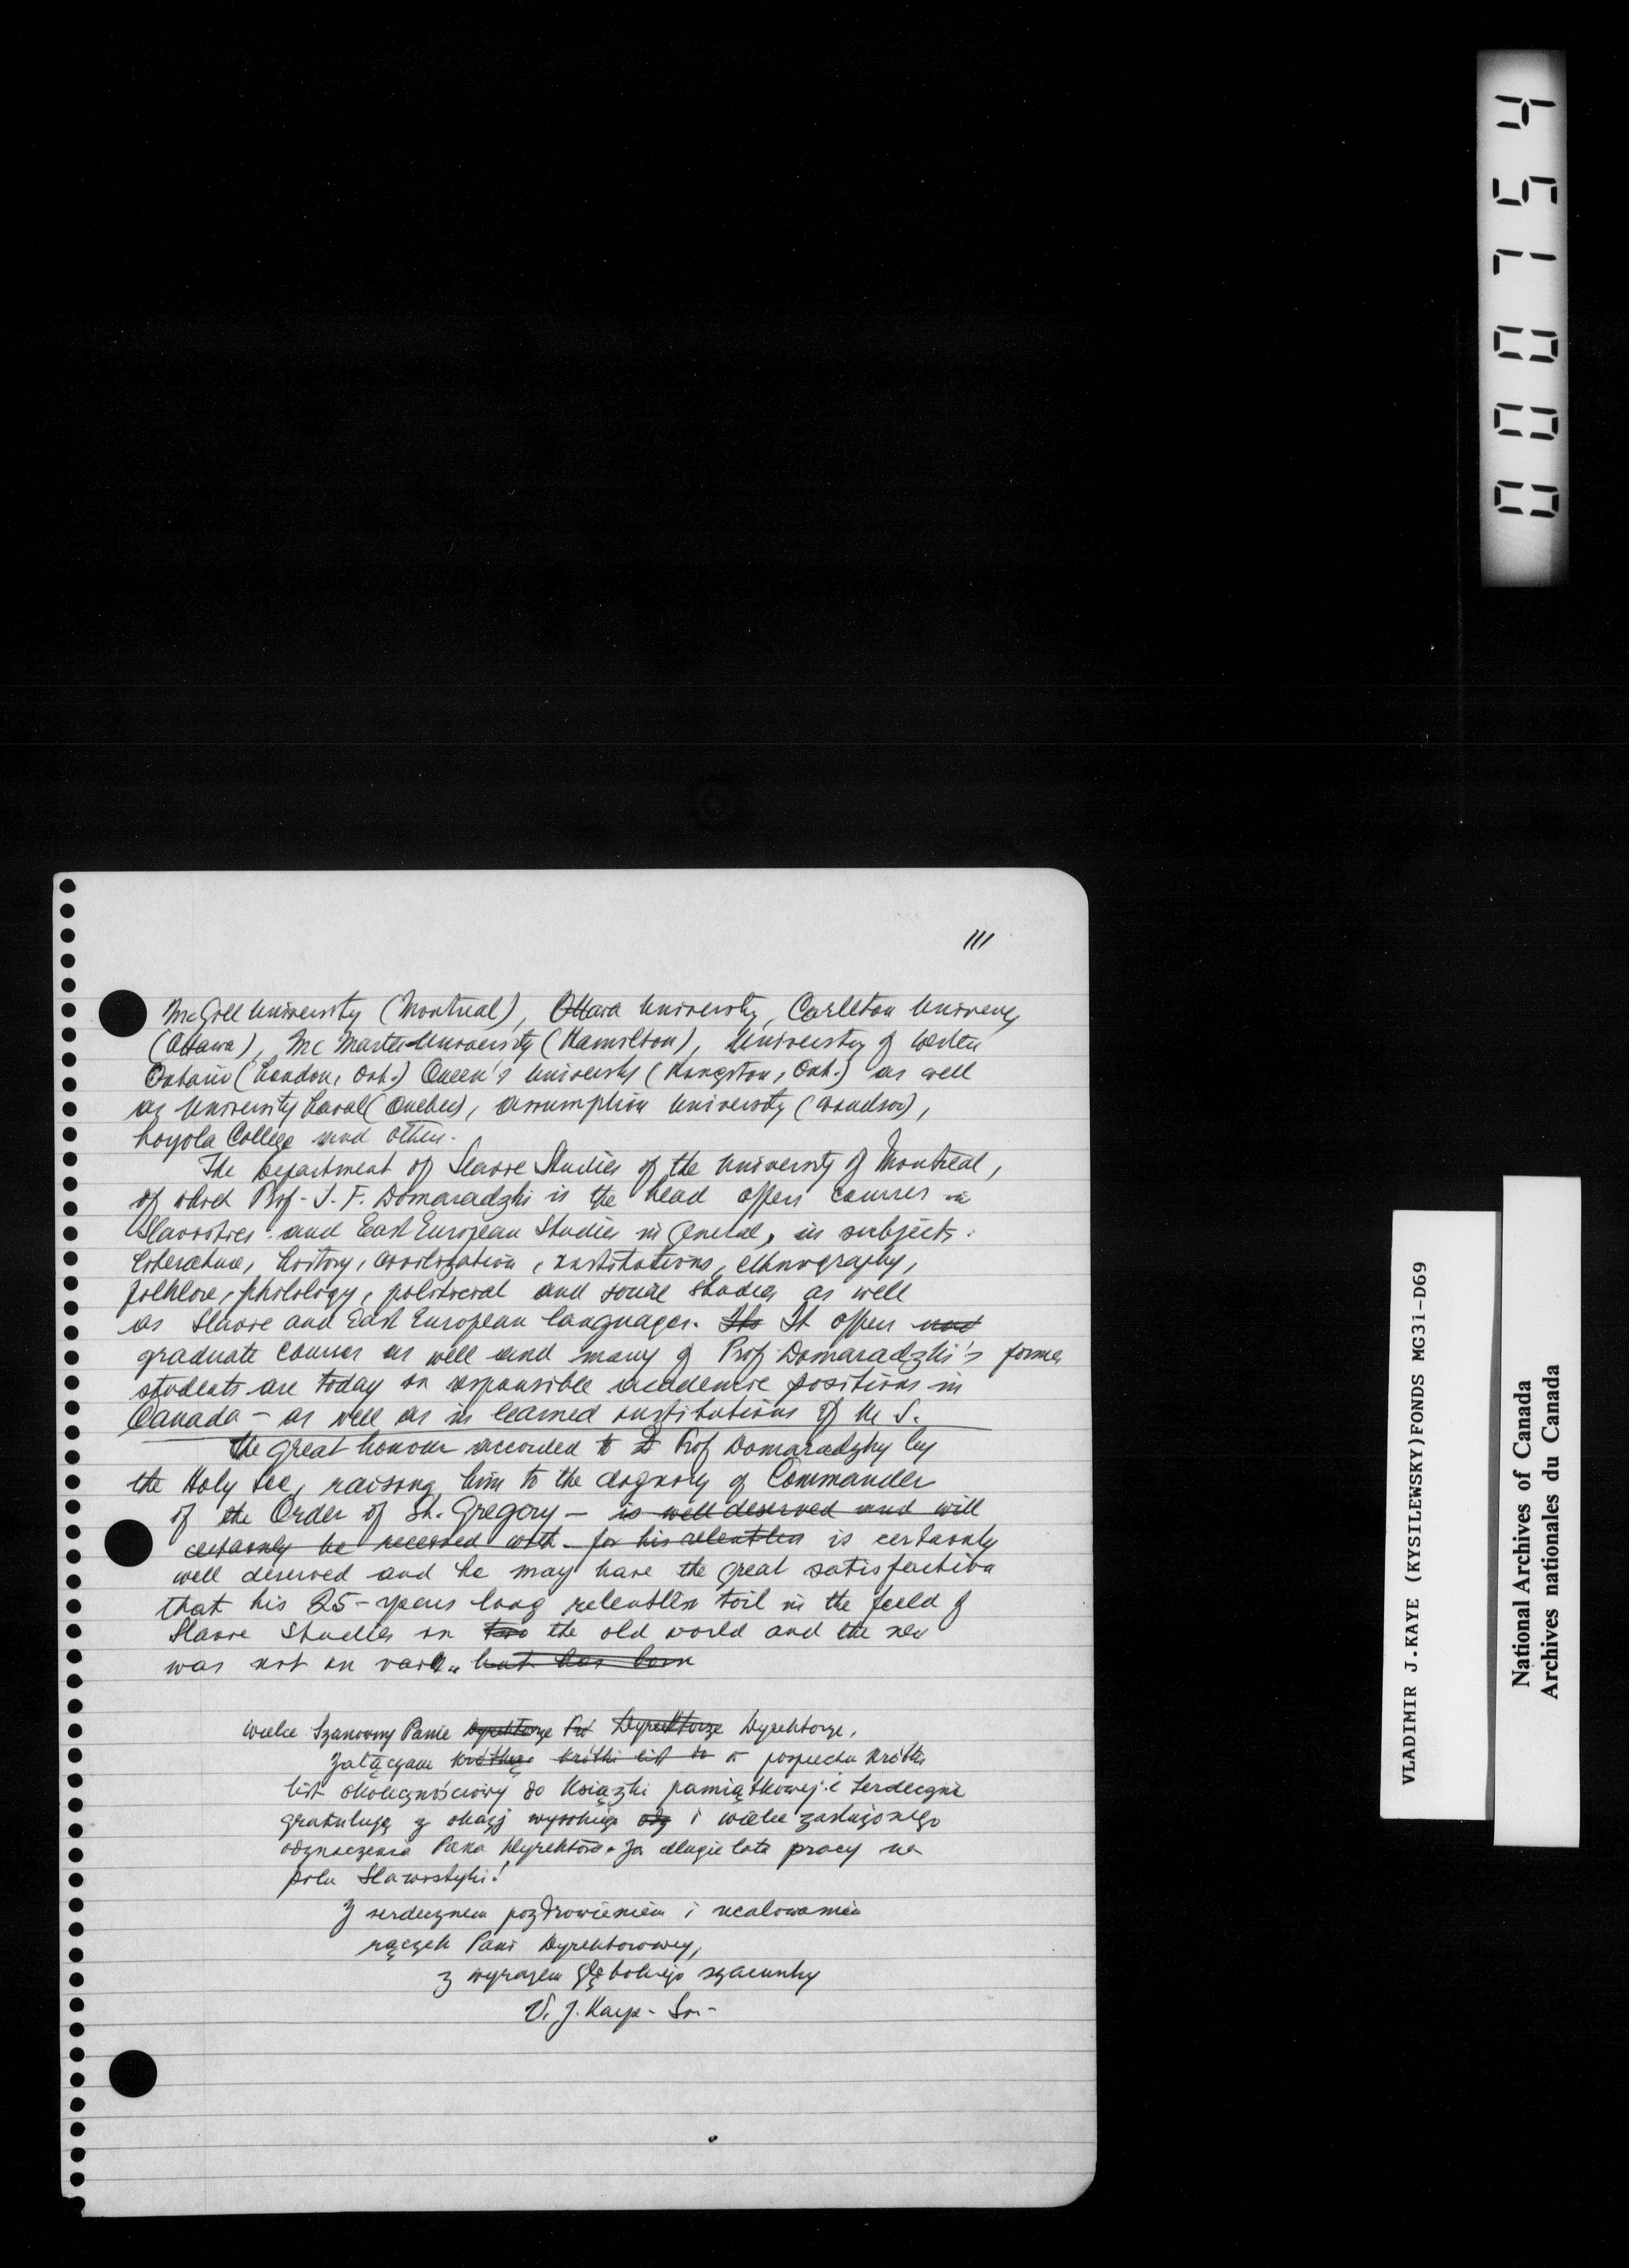 000754
III
McGill University (Montreal), Ottawa University, Carleton University
(Ottawa), Mc Master University (Hamilton), University of Western
Ontario (London, Ont.) Queen's University (Kingston, Ont.) as well
as University Laval (Quebec), Assumption University (Windsor),
Loyola College and others.
The Department of Slavic Studies of the University of Montreal,
of which Prof. J. F. Domaradzki is the head offers courses in
Slavistics and East European Studies in General, in subjects:
Literature, history, civilization, institutions, ethnography,
folklore, philology, political and social studies as well
as Slavic and East European languages. Its It offers
graduate courses as well and many of Prof. Domaradzki's former
students are today in responsible academic positions in
Canada - as well as in learned institutions of U. S.
The great honour accorded to D Prof Domaradzky by
the Holy See, raising him to the dignity of Commander
of the Order of St. Gregory - is well deserved and will
certainly be received with - for his relentless is certainly
well deserved and he may have the great satisfaction
that his 25-years long relentless toil in the field of
Slavic Studies in two the old world and the new
was not in vain. but has born
Wielce Szanowny Panie Dyrektorze Dyrektorze Dyrektorze,
Załączam krótki list do w pospiechu krótki
list okolicznościowy do Książki pamiątkowej i serdecznie
gratuluję z okazj wysokiego odz i wielce zasłużonego
odznaczenia Pana Dyrektora. Za długie lata pracy na
polu Slawistyki!
Z serdecznem pozdrowieniem i ucałowaniem
rączek Pani Dyrektorowej,
z wyrazem głębokiego szacunku
V. J. Kaye -
VLADIMIR J.KAYE (KYSILEWSKY)FONDS MG31-D69
National Archives of Canada
Archives nationales du Canada